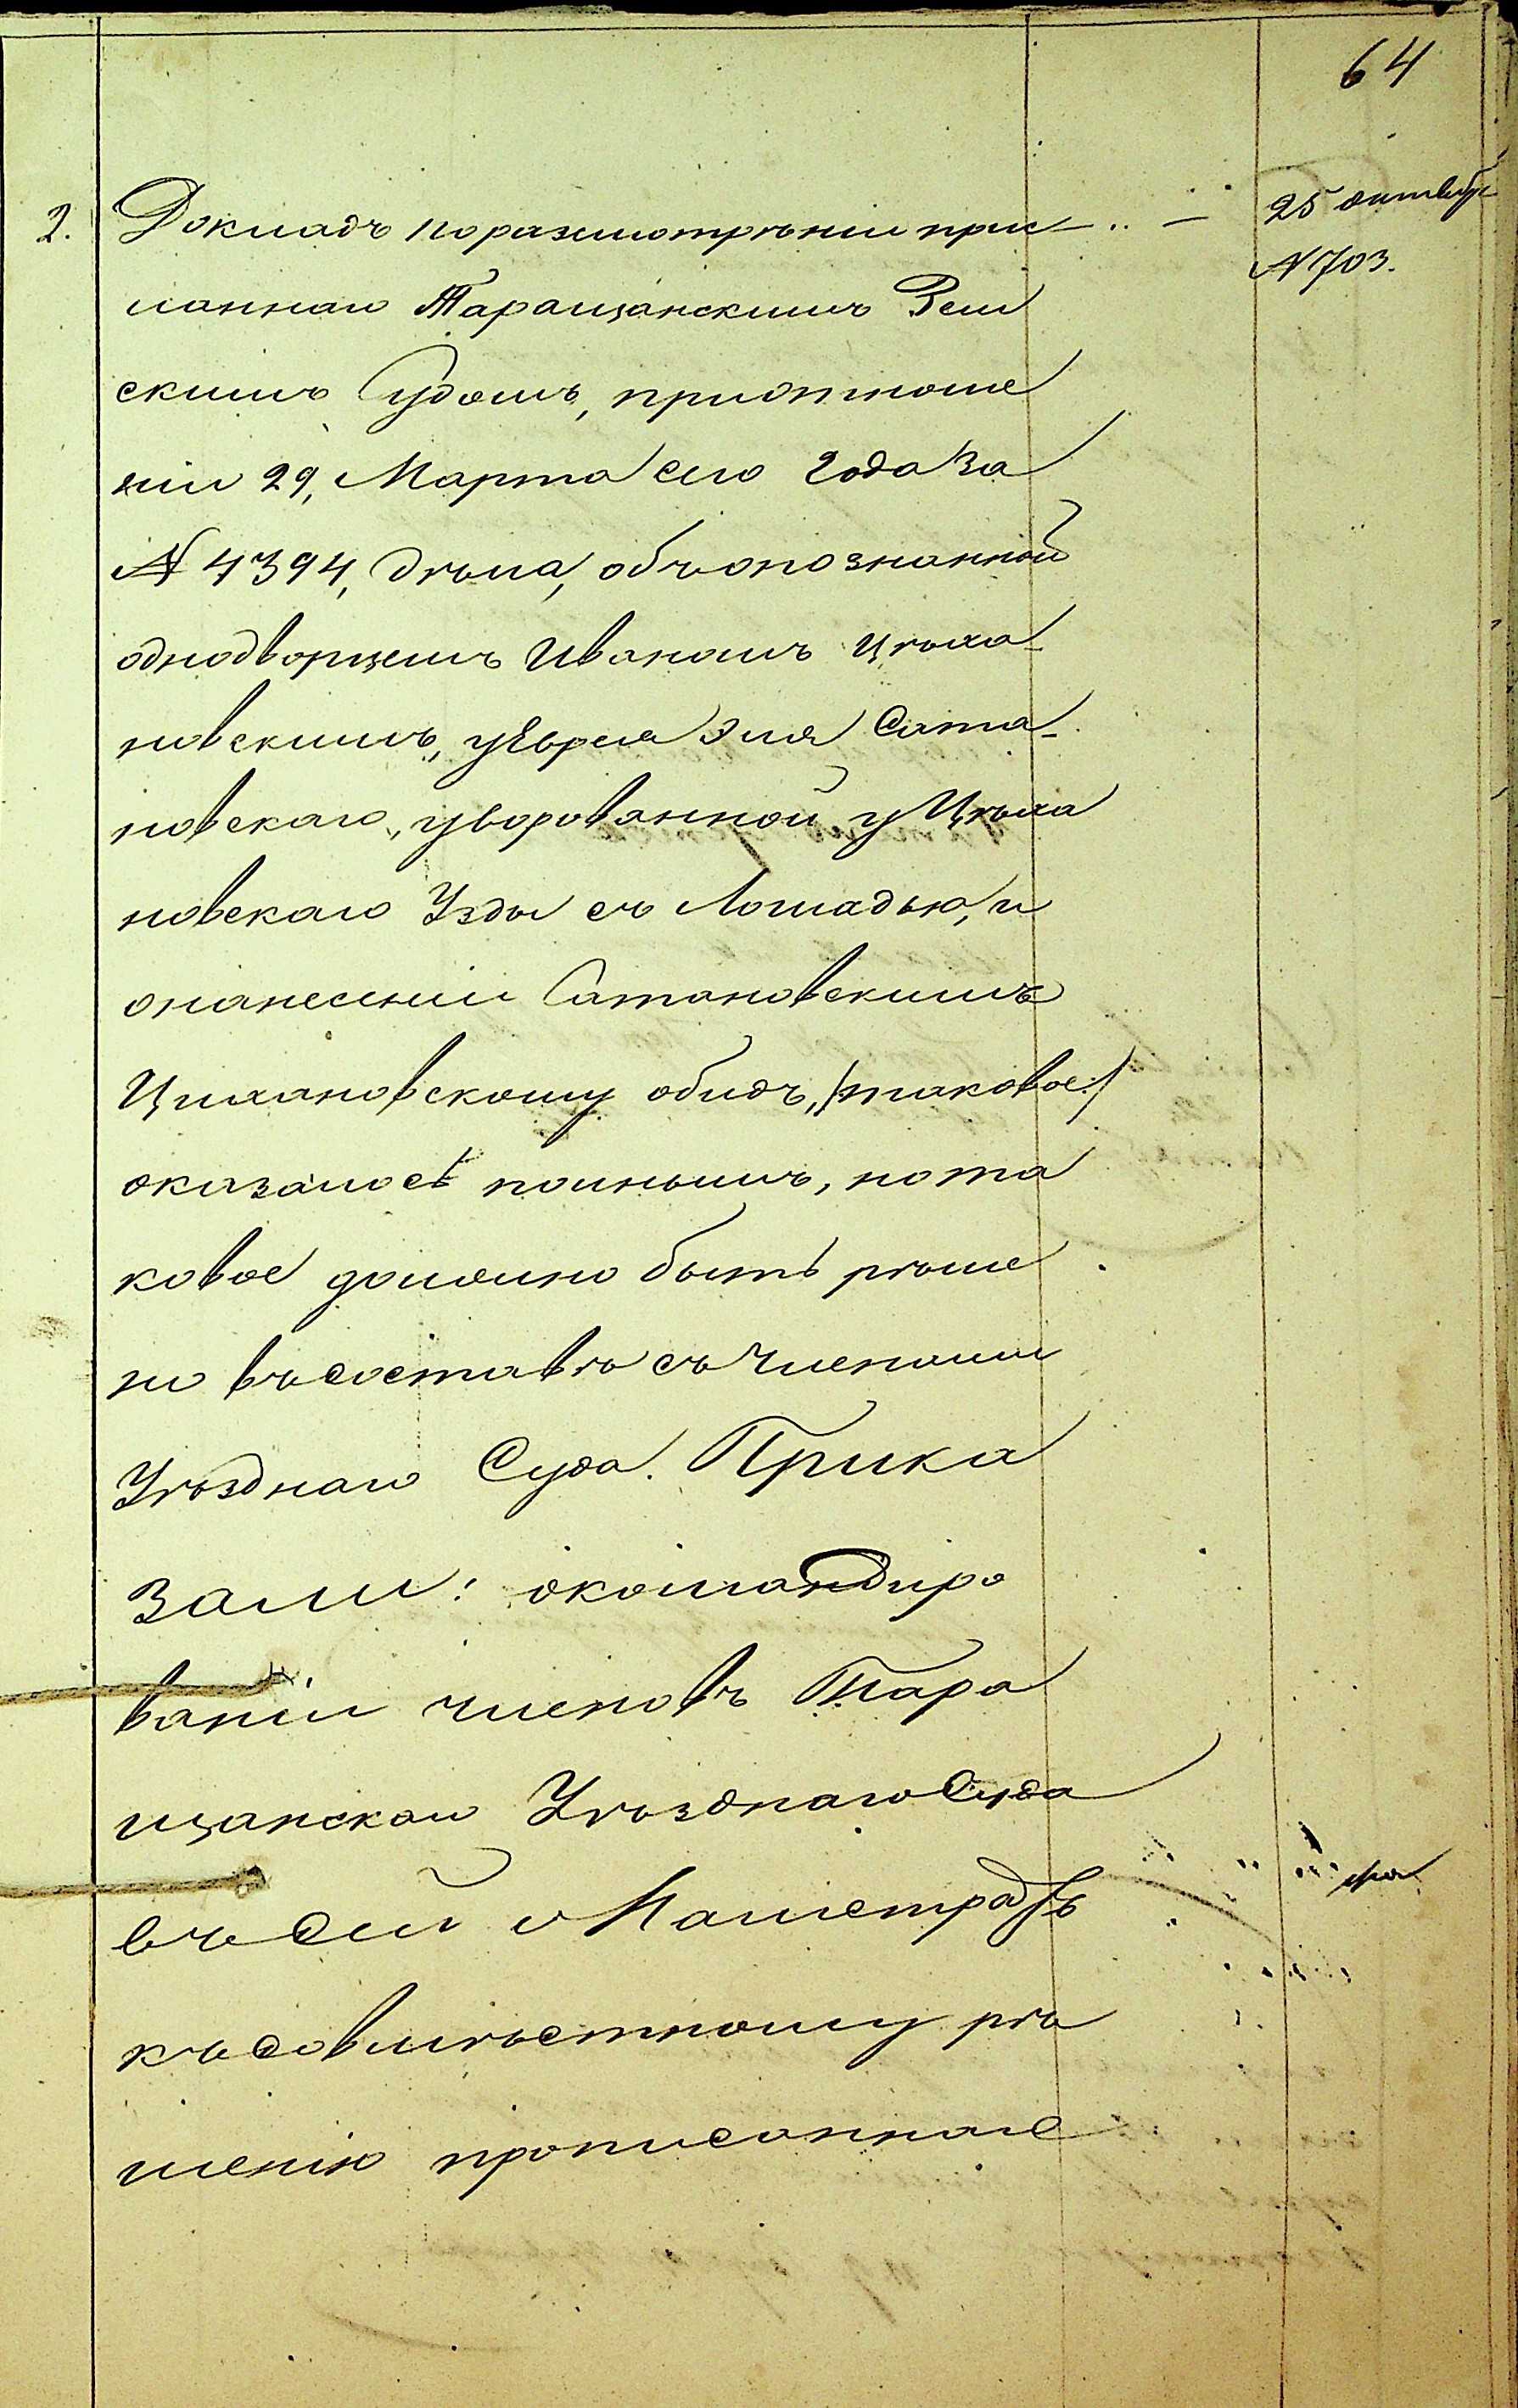 64
2. Докладъ поразсмотрѣніи прис
25 октябр
N 703.
ланнаго Таращанскимъ Зем
скимъ Судомъ, приотноше
ніи 29, Марта сего года за
N 4394, дѣла, объопознанной
однодворцемъ Иваномъ Цѣха-
новскимъ, уЕврея Эля Сата-
новскаго, уворованной у Цѣха
новскаго Узды съ Лошадью, и
онанесеніи Сатановскимъ
Цихановскому обидъ, /таковое/
оказалось полнымъ, но та
ковое должно быть рѣше
но въсоставѣ съ Членами
Уѣзднаго Суда. Прика
зали: окомандиро
ваніи членовъ Тара
щанскаго УѣзднагоСуда
въ сей Магистратъ
къ совмѣстному рѣ
шенію прописаннаго